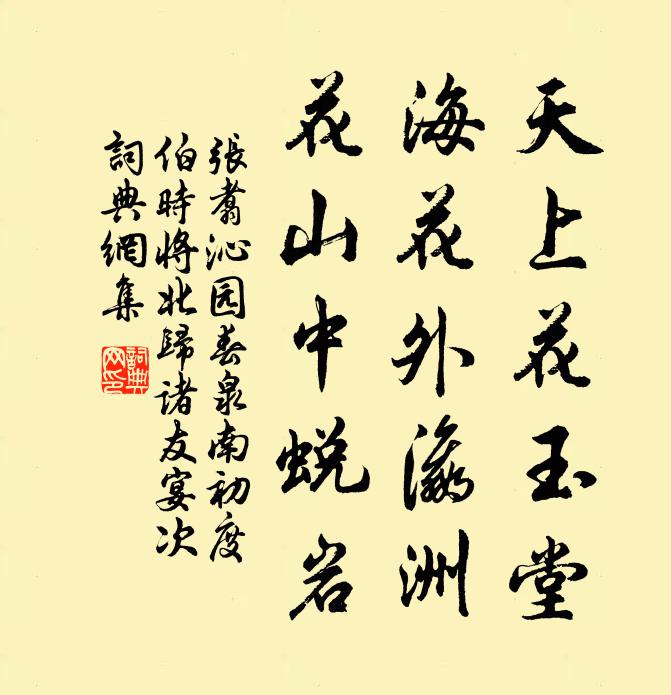 天上花玉堂
海花外瀛洲
花山中蜕岩
張翥沁园春泉南初度
伯時將北歸諸友宴次
詞典網集
詞典網印